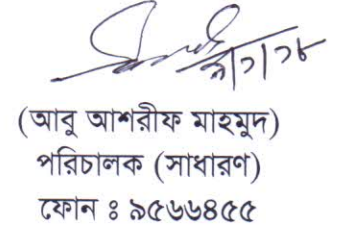 (আবু আশরীফ মাহমুদ)
পরিচালক (সাধারণ)
ফোন ঃ ৯৫৬৬৪৫৫